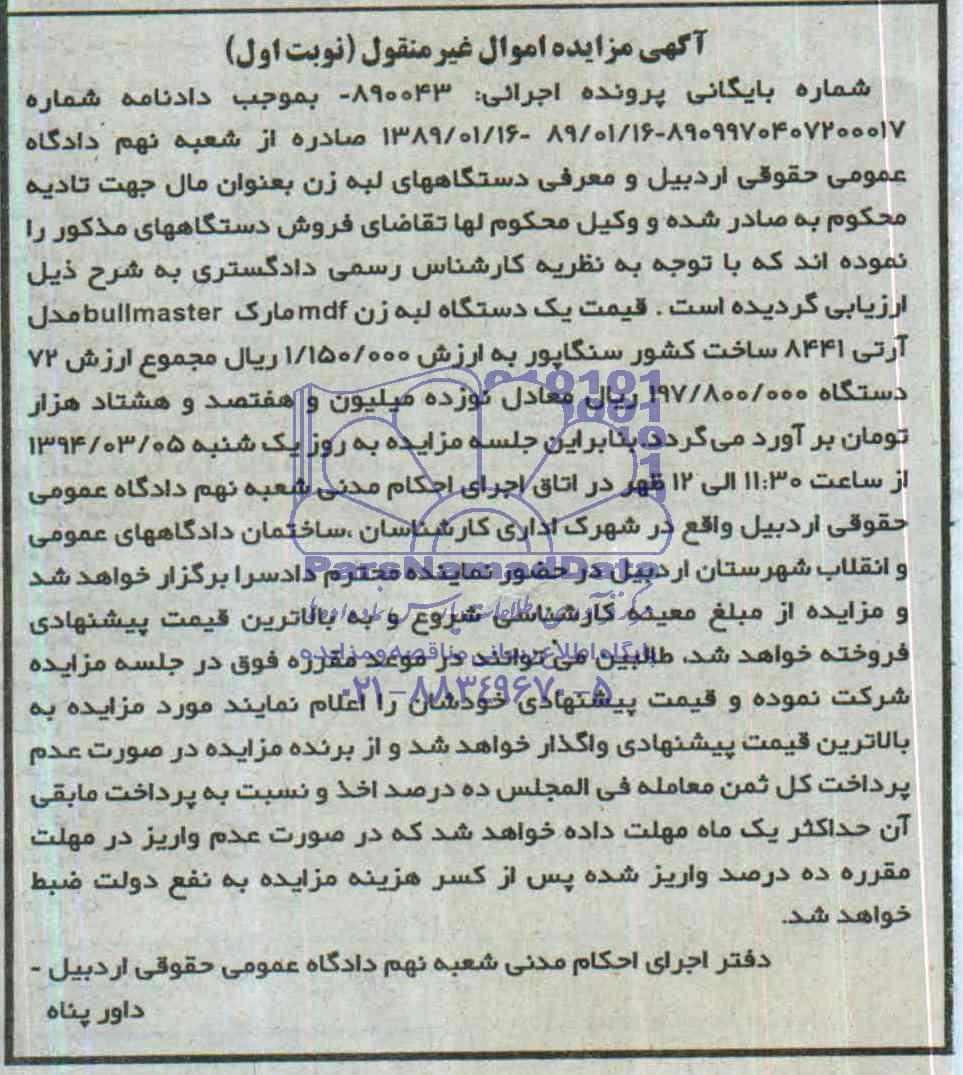 آگهی مزایده اموال غیر منقول (نوبت اول)
شماره بایگانی پرونده اجرائی: ۸۹۰۰۴۳- بموجب دادنامه شماره
۸۹۰۹۹۷۰۴۰۷۲۰۰۰۱۷-۸۹/۰۱/۱۶ -۱۳۸۹/۰۱/۱۶ صادره از شعبه نهم دادگاه
عمومی حقوقی اردبیل و معرفی دستگاههای لبه زن بعنوان مال جهت تادیه
محکوم به صادر شده و وکیل محکوم لها تقاضای فروش دستگاههای مذکور را
نموده اند که با توجه به نظریه کارشناس رسمی دادگستری به شرح ذیل
ارزیابی گردیده است . قیمت یک دستگاه لبه زن mdf مارک bullmaster مدل
آرتی ۸۴۴۱ ساخت کشور سنگاپور به ارزش ۱/۱۵۰/۰۰۰ ریال مجموع ارزش ۷۲
دستگاه ۱۹۷/۸۰۰/۰۰۰ ریال معادل نوزده میلیون و هفتصد و هشتاد هزار
تومان بر آورد می گردد.بنابراین جلسه مزایده به روز یک شنبه ۱۳۹۴/۰۳/۰۵
از ساعت ۱۱:۳۰ الی ۱۲ ظهر در اتاق اجرای احکام مدنی شعبه نهم دادگاه عمومی
حقوقی اردبیل واقع در شهرک اداری کارشناسان ،ساختمان دادگاههای عمومی
و انقلاب شهرستان اردبیل در حضور نماینده محترم دادسرا برگزار خواهد شد
ParsNamadData
و مزایده از مبلغ معینه کارشناسی شروع و به بالاترین قیمت پیشنهادی
فروخته خواهد شد، طالبین می توانند در موعد مقرره فوق در جلسه مزایده
پایگاه اطلاع رسانی مناقصه و مزایده
شرکت نموده و قیمت پیشنهادی خودشان را اعلام نمایند مورد مزایده به
۰۲۱-۸۸۳۴۹۶۷۰-۵
بالاترین قیمت پیشنهادی واگذار خواهد شد و از برنده مزایده در صورت عدم
پرداخت کل ثمن معامله فی المجلس ده درصد اخذ و نسبت به پرداخت مابقی
آن حداکثر یک ماه مهلت داده خواهد شد که در صورت عدم واریز در مهلت
مقرره ده درصد واریز شده پس از کسر هزینه مزایده به نفع دولت ضبط
خواهد شد.
دفتر اجرای احکام مدنی شعبه نهم دادگاه عمومی حقوقی اردبیل -
داور پناه